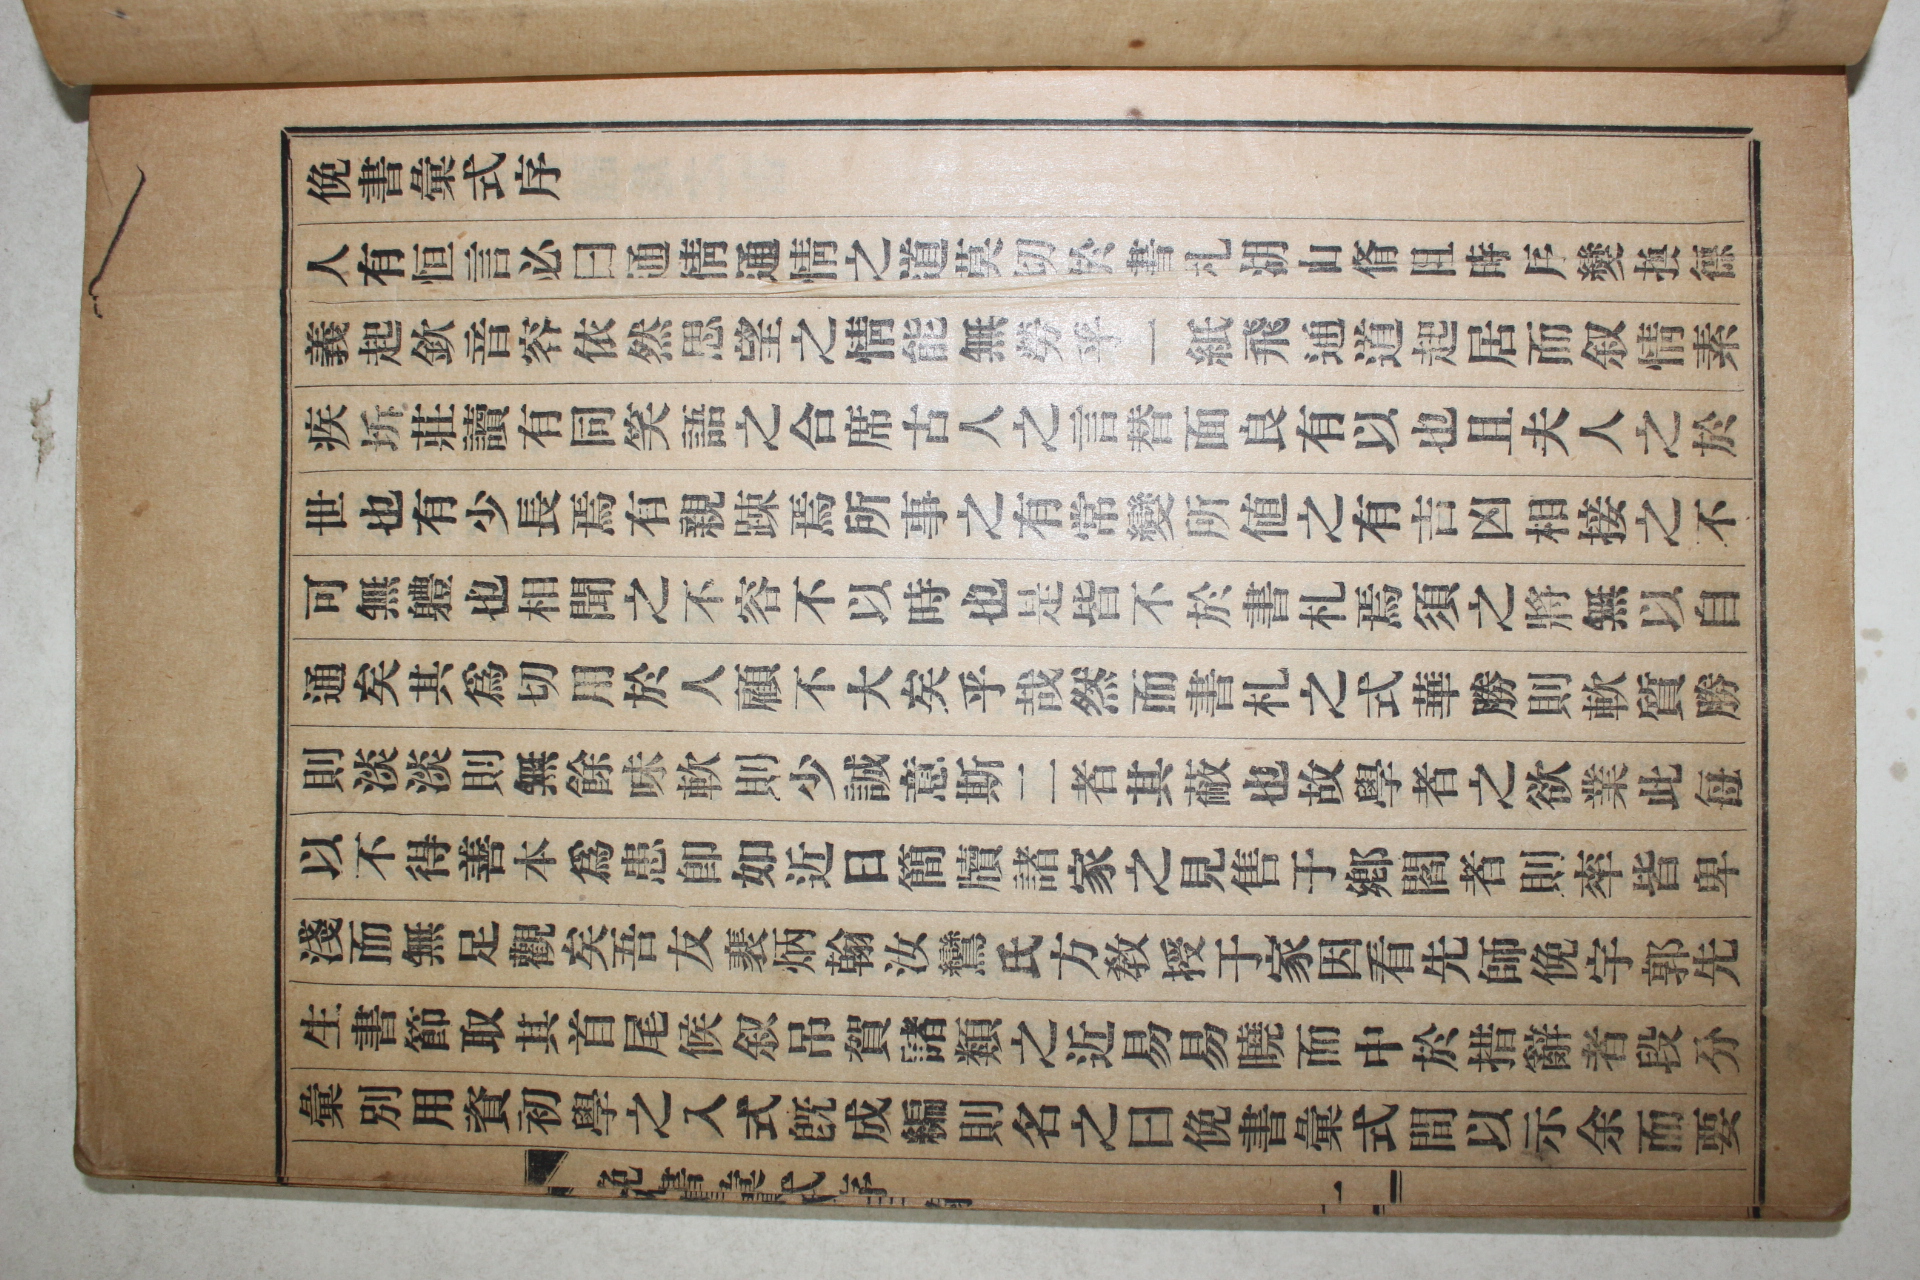 俛書彙式序
人有恒言必曰通情通情之道莫切於書札湖山脩阻時序變換儀
義起欽音容依然思望之情能無勞乎一紙飛通道起居而叙情素
疾坼莊讀有同笑語之合席古人之言替面良有以也且夫人之於
世也有少長焉有親踈焉所事之有常變所値之有吉凶相接之不
可無軆也相聞之不容不以時也是皆不於書札焉須之將無以自
通矣其爲切用於人顧不大矣乎哉然而書札之式華勝則軟質勝
則淡淡則無餘味軟則少誠意斯二者其蔽也故學者之欲業此每
以不得善本爲患卽如近日簡牘諸家之見售于鄕閭者則率皆卑
淺而無足觀矣吾友裵炳翰汝鸞氏方敎授于家因看先師俛宇郭先
生書節取其首尾候叙吊賀諸類之近易易曉而中於措辭者段分
彙別用資初學之入式旣成編則名之曰俛書彙式間以示余而要
俛書彙式序